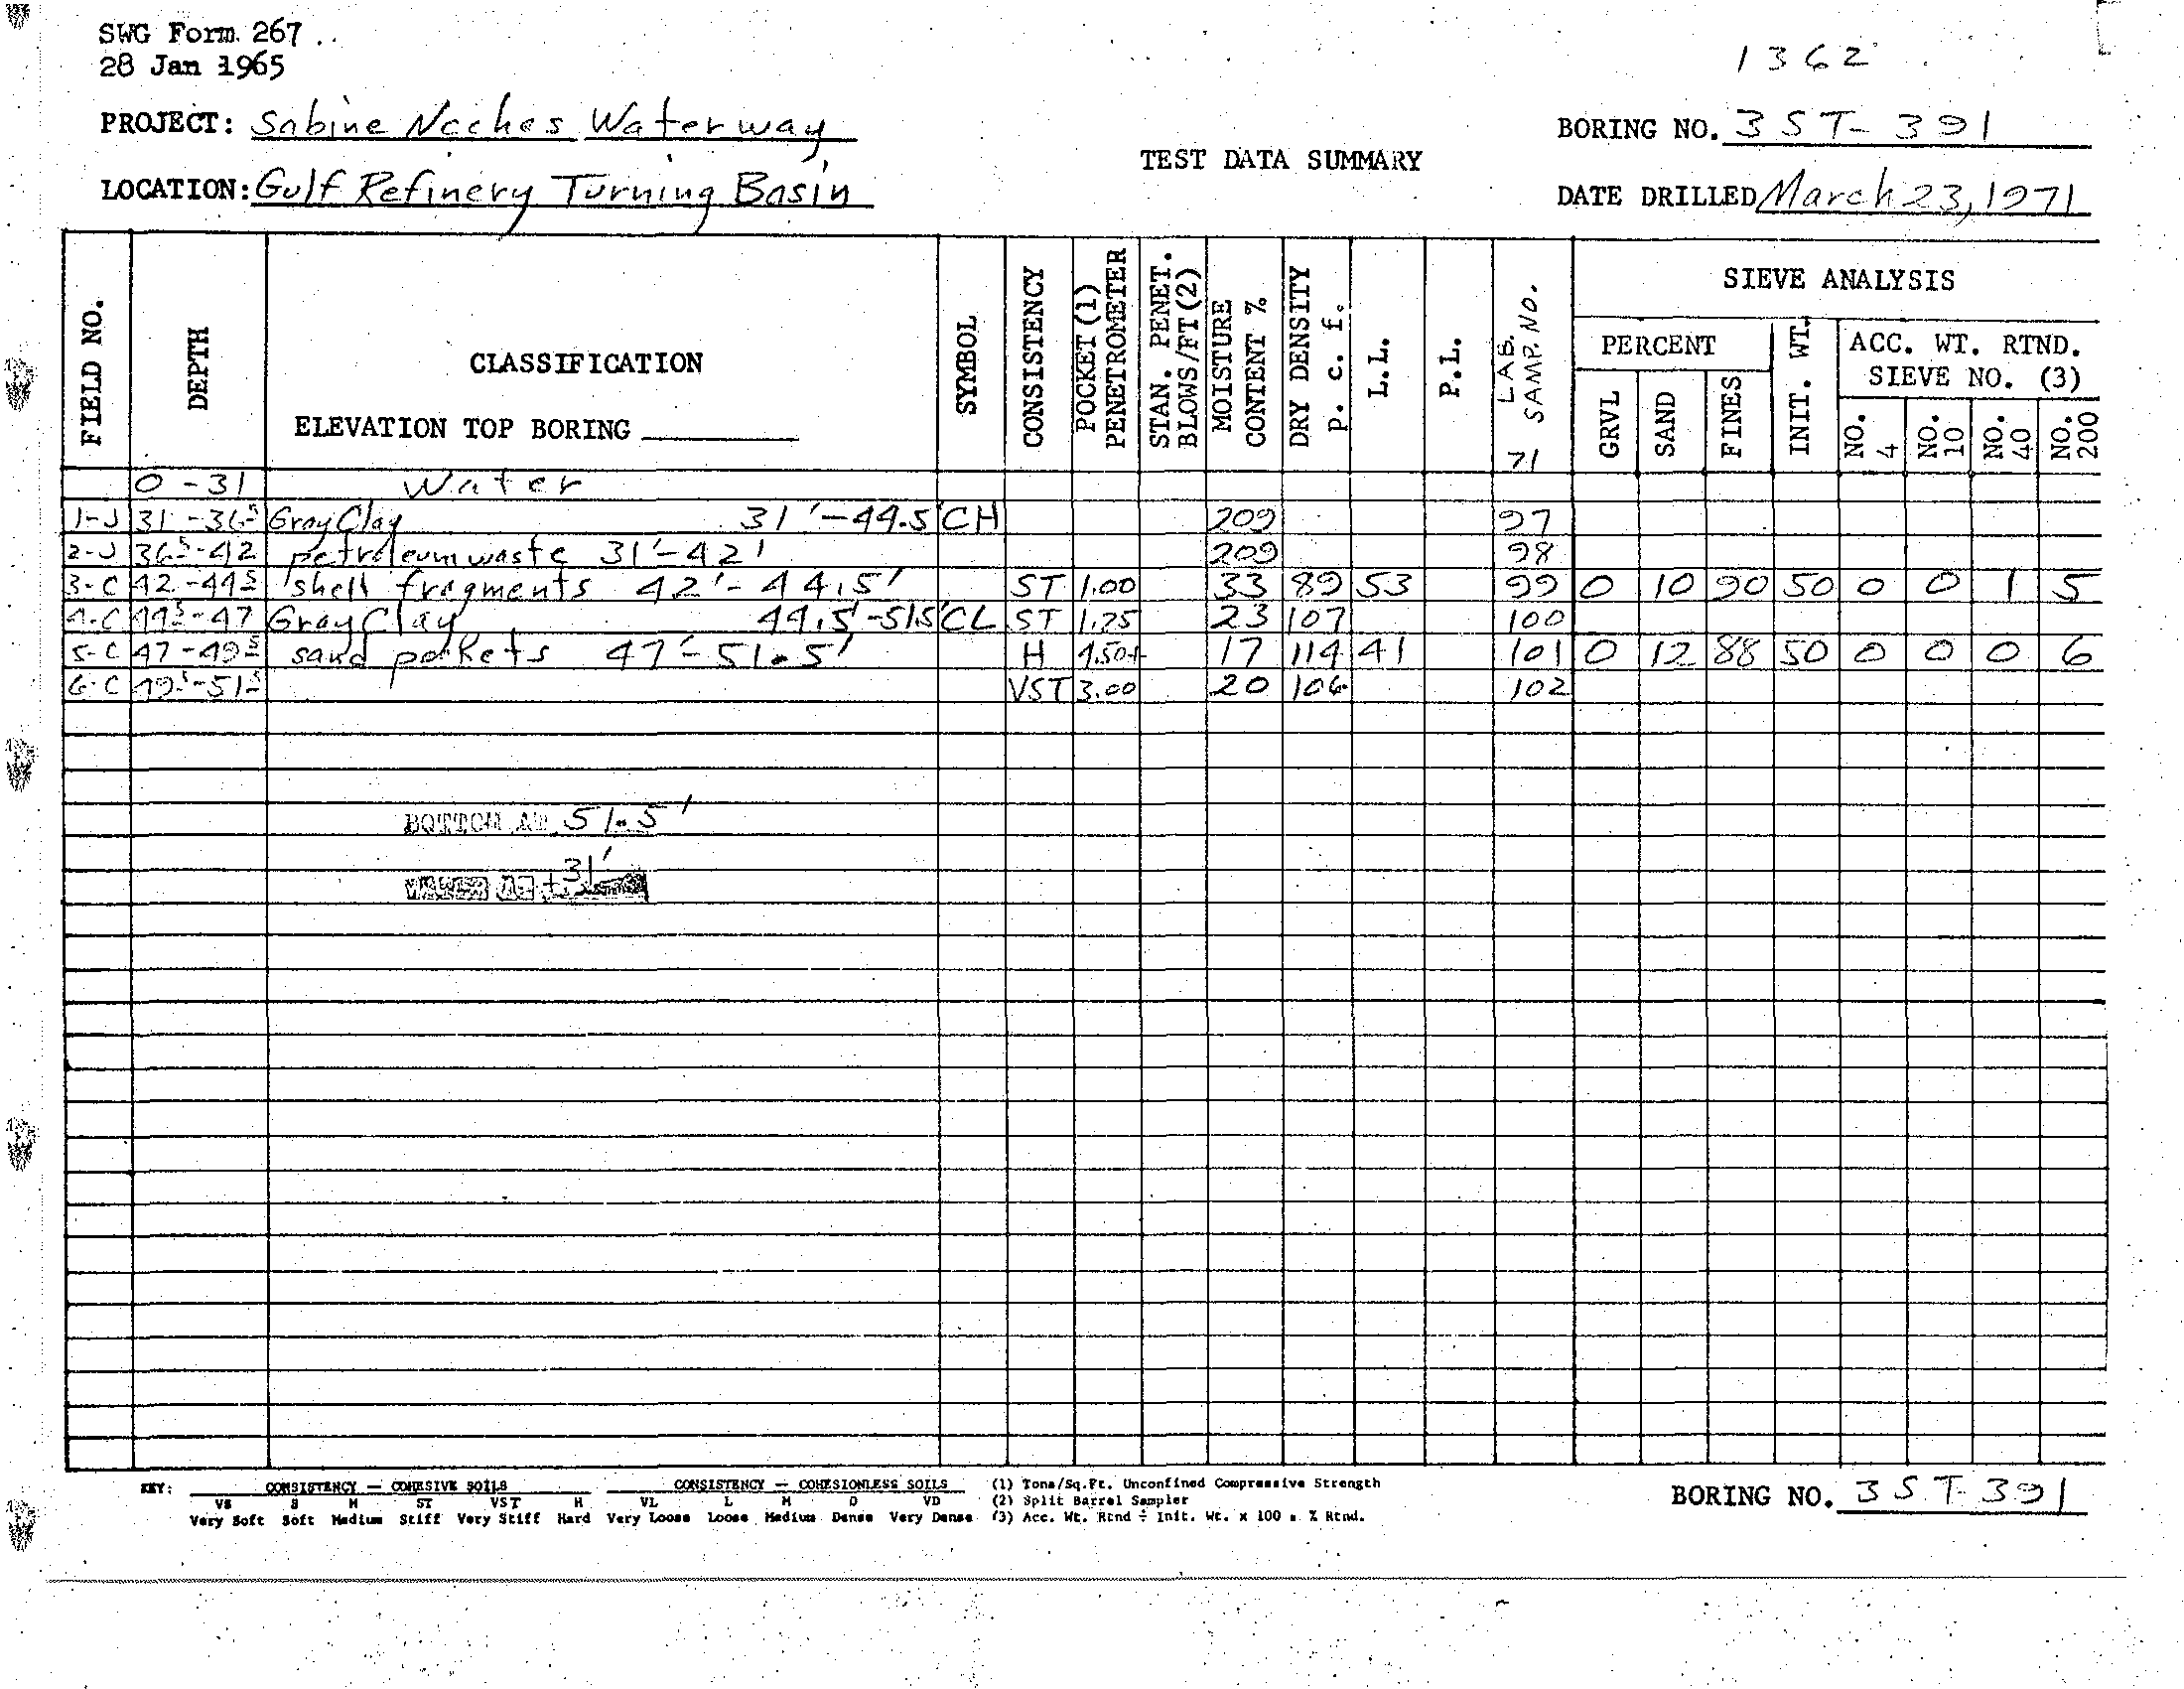 SWG Form 267
28 Jan 1965
1362
PROJECT: Sabine Neches Waterway
BORING NO. 3ST-391
TEST DATA SUMMARY
LOCATION: Gulf Refinery Turning Basin
DATE DRILLED March 23, 1971
FIELD NO. DEPTH CLASSIFICATION SYMBOL CONSISTENCY POCKET (1) PENETROMETER STAN. PENET. BLOWS/FT (2) MOISTURE CONTENT % DRY DENSITY p. c. f. L.L. P.L. LAB. SAMP. NO. SIEVE ANALYSIS
PERCENT INIT. WT. ACC. WT. RTND. SIEVE NO. (3)
ELEVATION TOP BORING
71 GRVL SAND FINES NO. 4 NO. 10 NO. 40 NO. 200
0 - 31 Water
1-J 31 - 36.5 Gray Clay 31' - 44.5 CH 209 97
2-J 36.5 - 42 petroleum waste 31' - 42' 209 98
3-C 42 - 44.5 shell fragments 42' - 44.5' ST 1.00 33 89 53 99 0 10 90 50 0 0 1 5
4-C 44.5 - 47 Gray Clay 44.5' - 51.5' CL ST 1.25 23 107 100
5-C 47 - 49.5 sand pockets 47' - 51.5' H 4.50+ 17 114 41 101 0 12 88 50 0 0 0 6
6-C 49.5 - 51.5 VST 3.00 20 106 102
BOTTOM AT 51.5'
WATER AT 31'
KEY: CONSISTENCY — COHESIVE SOILS CONSISTENCY — COHESIONLESS SOILS (1) Tons/Sq.Ft. Unconfined Compressive Strength
VS S M ST VST H VL L M D VD (2) Split Barrel Sampler
Very Soft Soft Medium Stiff Very Stiff Hard Very Loose Loose Medium Dense Very Dense (3) Acc. Wt. Rtnd ÷ Init. Wt. x 100 = % Rtnd.
BORING NO. 3ST-391